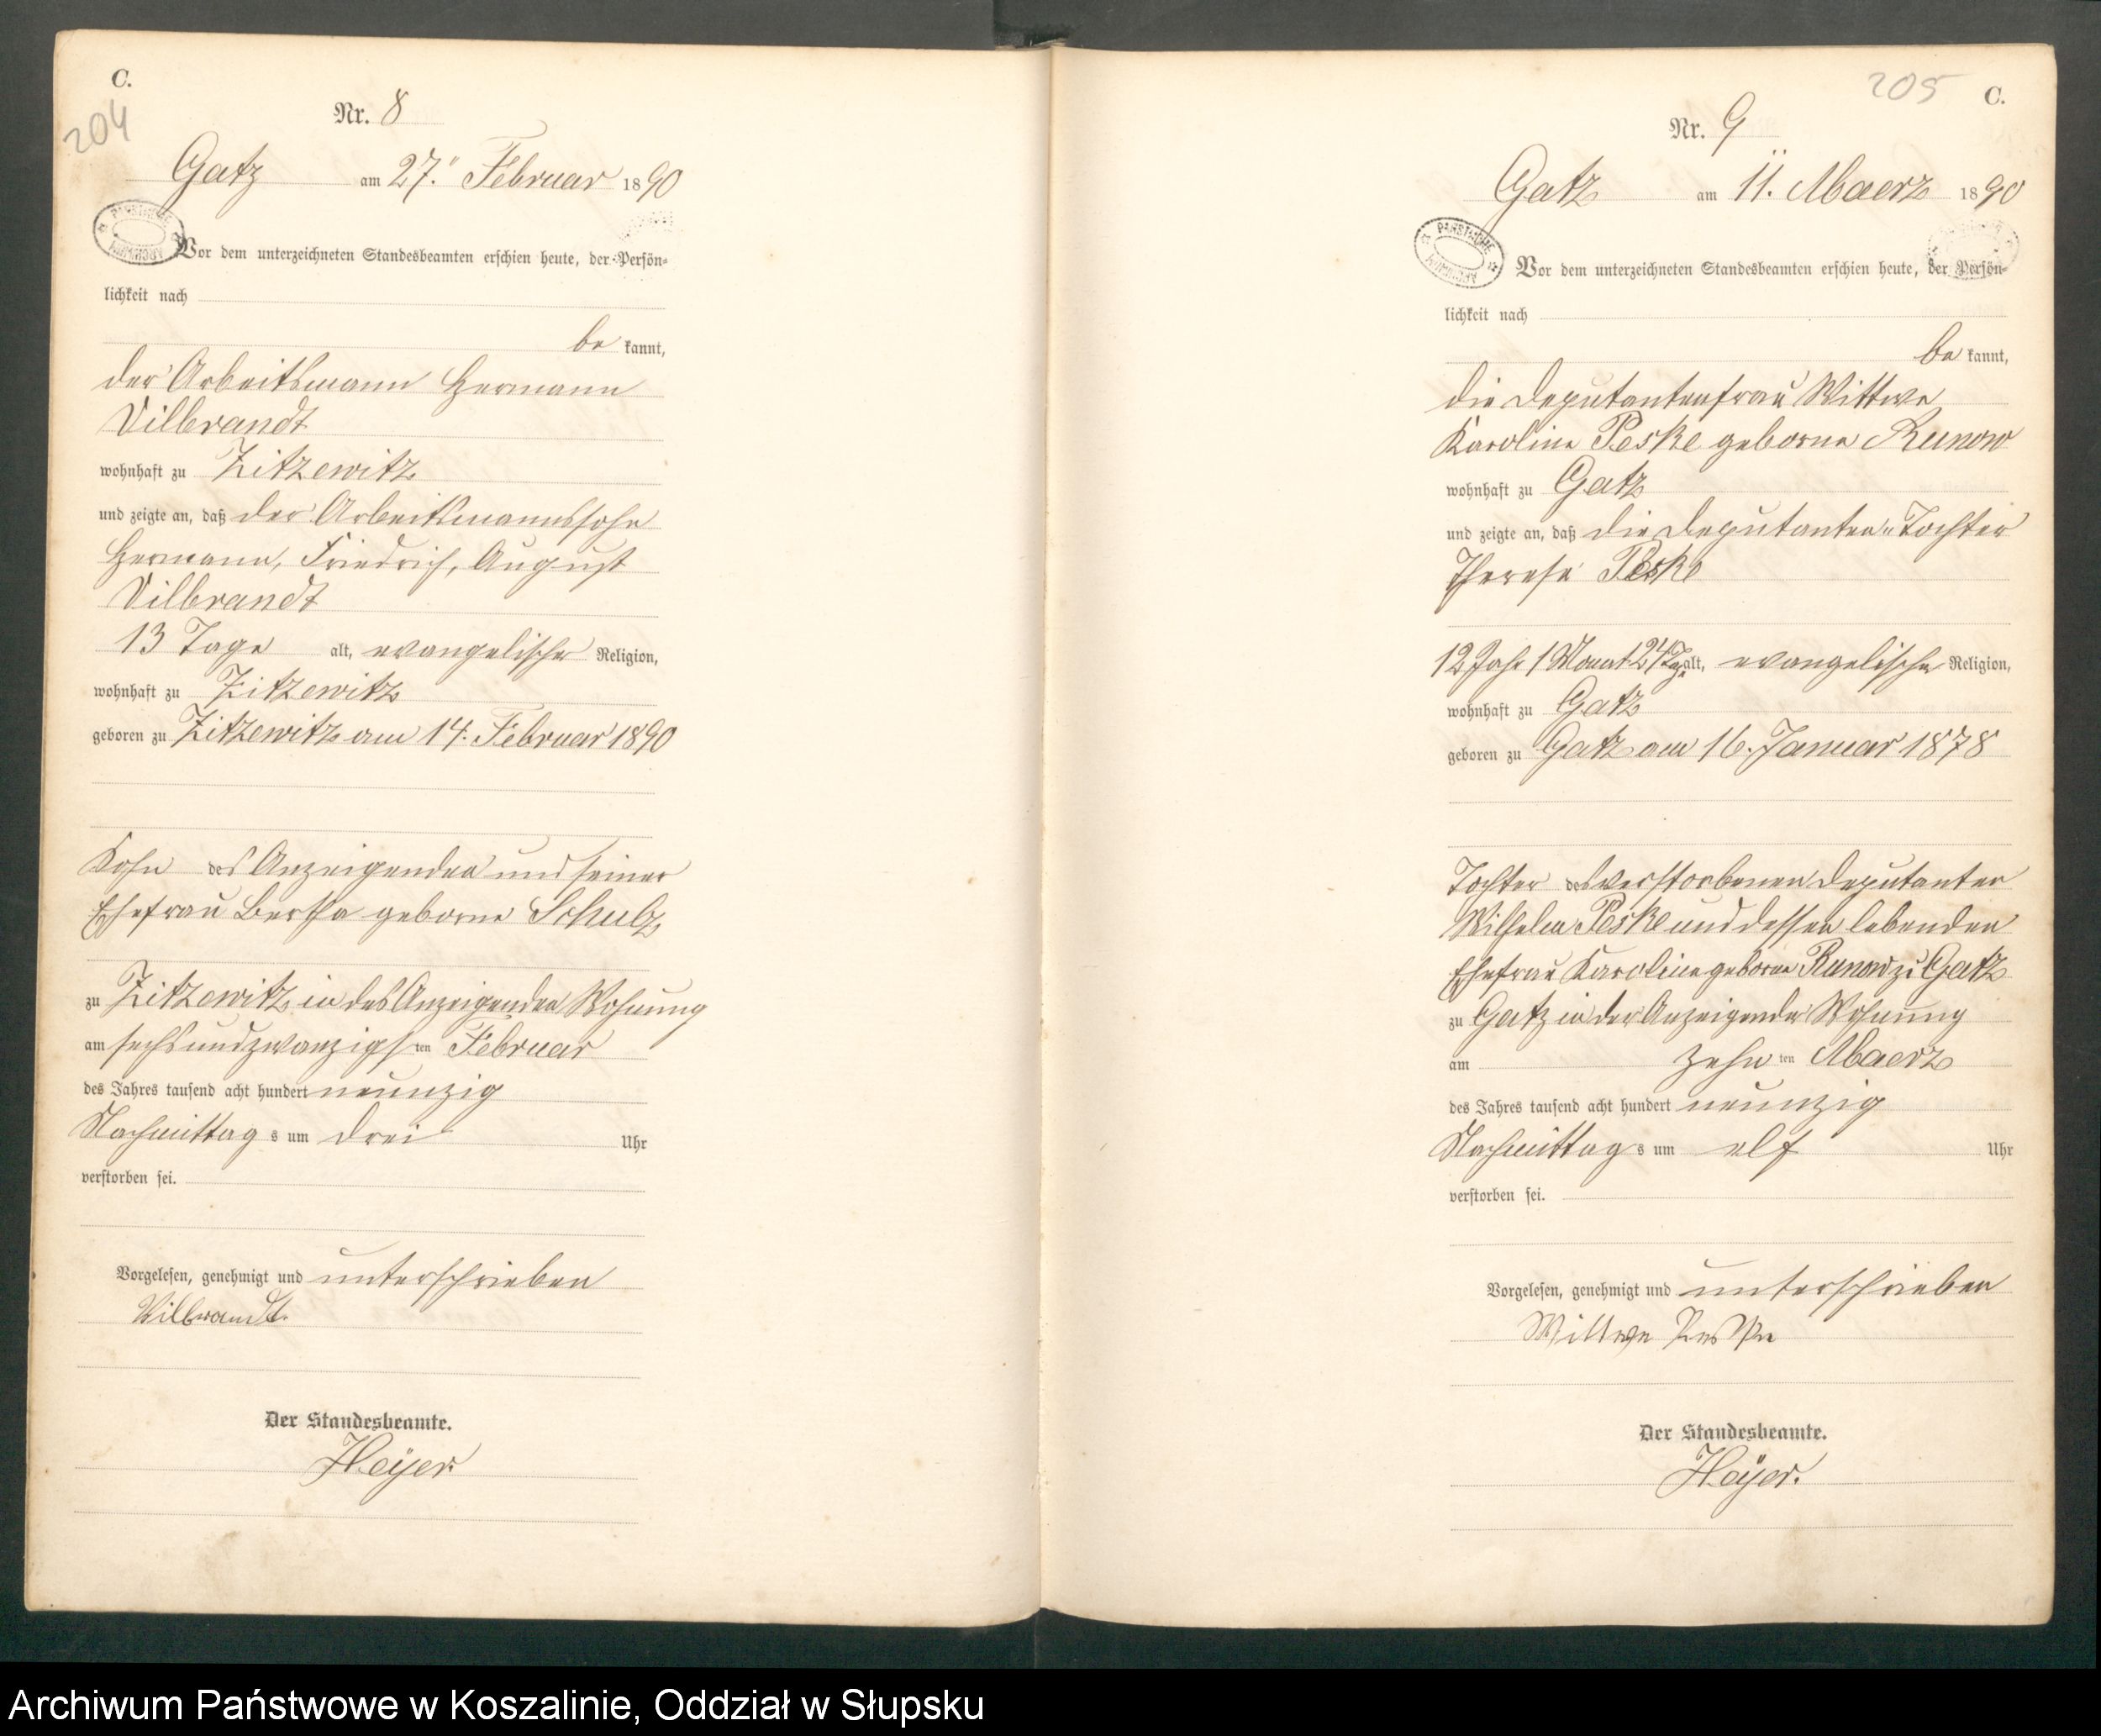 C.
204
Nr. 8
Gatz am 27. Februar 1890
Vor dem unterzeichneten Standesbeamten erschien heute, der Persön-
lichkeit nach
be kannt,
der Arbeitsmann Hermann
Vilbrandt
wohnhaft zu Zitzewitz
und zeigte an, daß der Arbeitsmannssohn
Hermann, Friedrich, August
Vilbrandt
13 Tage alt, evangelischer Religion,
wohnhaft zu Zitzewitz
geboren zu Zitzewitz am 14. Februar 1890
Sohn des Anzeigenden und seiner
Ehefrau Bertha geborne Schulz
zu Zitzewitz in des Anzeigenden Wohnung
am sechsundzwanzigsten Februar
des Jahres tausend acht hundert neunzig
Nachmittags um drei Uhr
verstorben sei.
Vorgelesen, genehmigt und unterschrieben
Vilbrandt.
Der Standesbeamte.
Heyer.
205
C.
Nr. 9
Gatz am 11. Maerz 1890
PAŃSTWOWE ARCHIWUM
Vor dem unterzeichneten Standesbeamten erschien heute, der Persön-
lichkeit nach
be kannt,
die Deputantenfrau Wittwe
Karoline Peske geborne Runow
wohnhaft zu Gatz
und zeigte an, daß die Deputanten-Tochter
Therese Peske
12 Jahr 1 Monat 24 Tage alt, evangelischer Religion,
wohnhaft zu Gatz
geboren zu Gatz am 16. Januar 1878
Tochter des verstorbenen Deputanten
Wilhelm Peske und dessen lebenden
Ehefrau Karoline geborne Runow zu Gatz
zu Gatz in der Anzeigende Wohnung
am zehnten Maerz
des Jahres tausend acht hundert neunzig
Nachmittags um elf Uhr
verstorben sei.
Vorgelesen, genehmigt und unterschrieben
Wittwe Peske
Der Standesbeamte.
Heyer.
Archiwum Państwowe w Koszalinie, Oddział w Słupsku